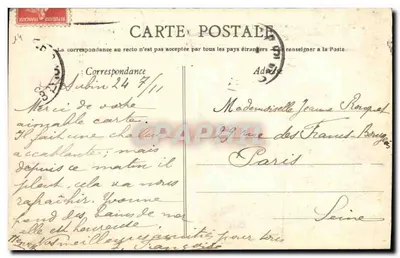 CARTE POSTALE
La correspondance au recto n'est pas acceptée par tous les pays étrangers se renseigner à la Poste
Correspondance
Adresse
Aubin 24 7/11
Merci de votre
aimable carte.
Il fait une chaleur
accablante; mais
depuis ce matin il
pleut, cela va nous
rafraîchir. Yvonne
prend des bains de mer
elle est heureuse.
meilleures amitiés pour tous
Françoise
Mademoiselle Jeanne
rue des Francs-Bourgeois
Paris
Seine